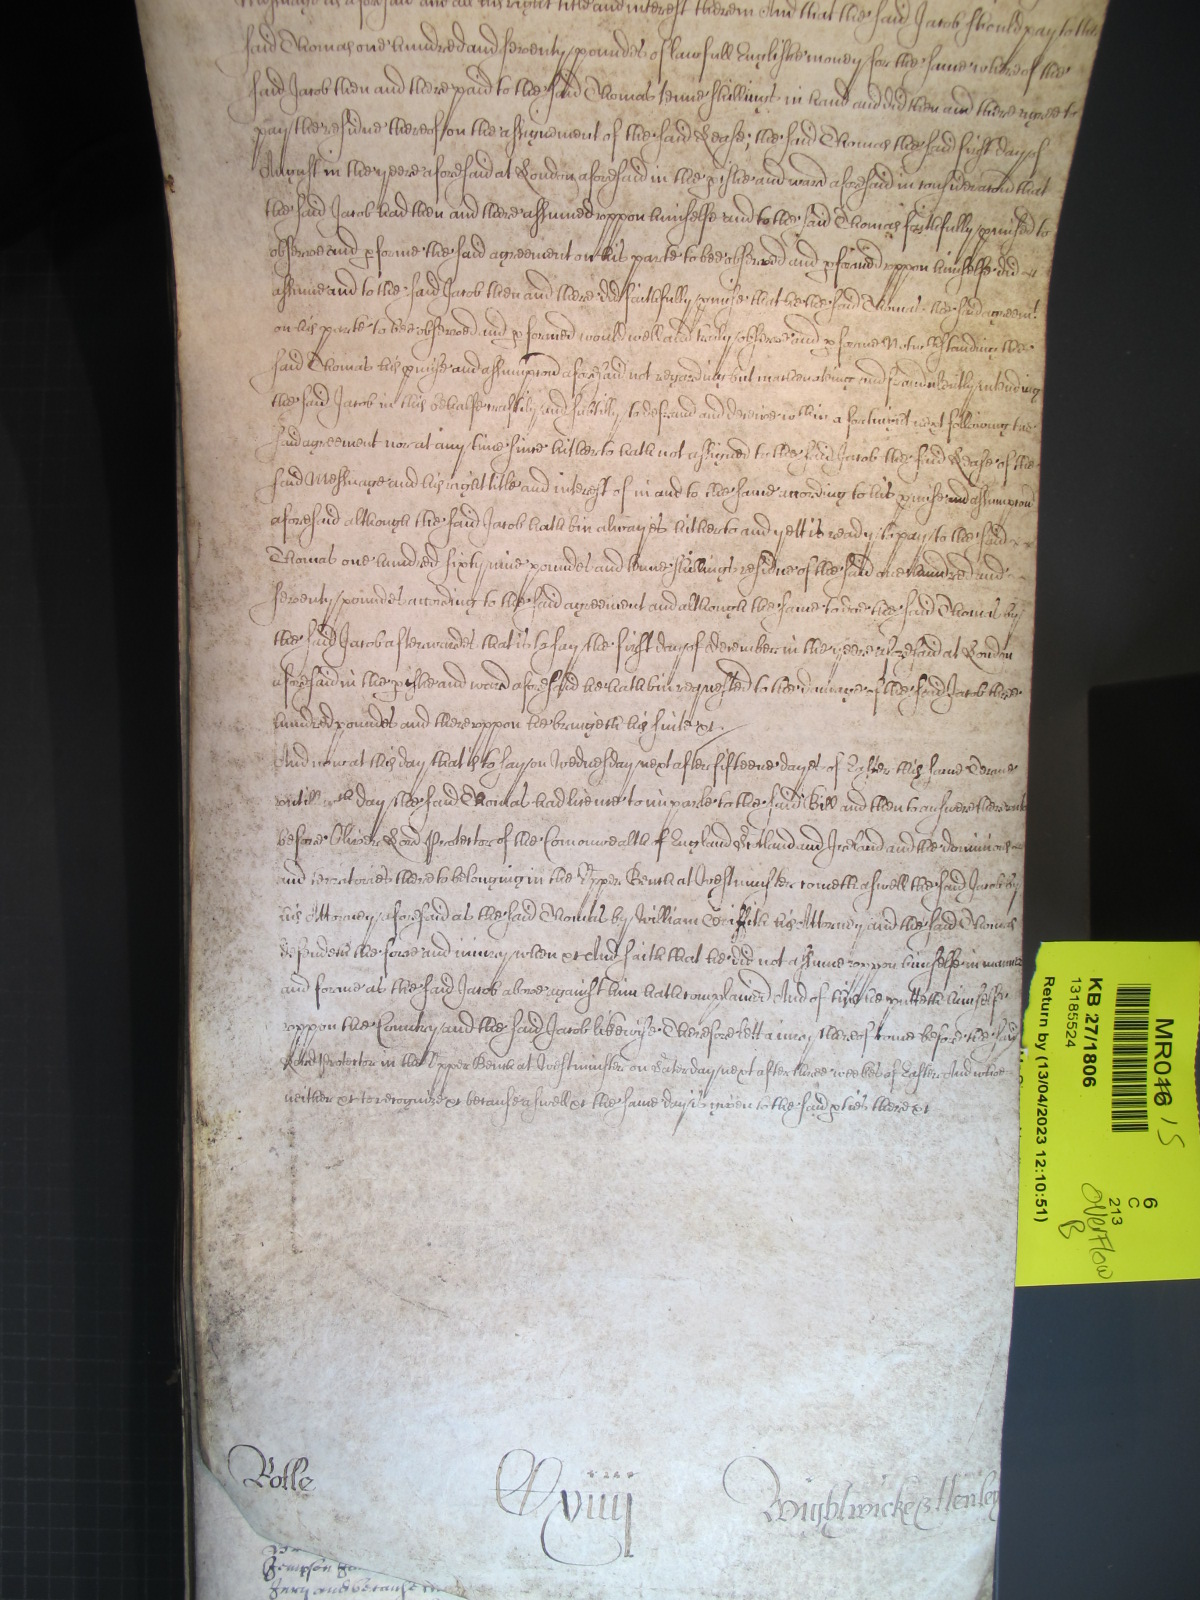 Messuage as aforesaid and all his right title and interest therein And that the said Jacob should pay to the
said Thomas one hundred and seventy poundes of lawfull Englishe money for the same whereof the
said Jacob then and there paid to the said Thomas tenne shillings in hand and did then and there agree to
pay the residue thereof on the assignement of the said Lease; the said Thomas the said first day of
August in the yeere aforesaid at London aforesaid in the pishe and ward aforesaid in consideracon that
the said Jacob had then and there assumed uppon himselfe and to the said Thomas faithfully pmised to
observe and pforme the said agreement on his parte to bee observed and pformed uppon himselfe did
assume and to the said Jacob then and there did faithfully pmise that he the said Thomas the said agreemt
on his parte to bee observed and pformed would well and truly observe and pforme Notwthstanding the
said Thomas his pmise and assumpcon aforesaid not regarding but machinating and fraudulently intending
the said Jacob in this behalfe craftily and subtilly to defraud and deceive within a fortnight next following the
said agreement nor at any time since hitherto hath not assigned to the said Jacob the said Lease of the
said Messuage and his right title and interest of in and to the same according to his pmise and assumpcon
aforesaid although the said Jacob hath bin alwayes hitherto and yett is ready to pay to the said
Thomas one hundred sixty nine poundes and tenne shillings residue of the said one hundred and
seventy poundes according to the said agreement and although the same to doe the said Thomas by
the said Jacob afterwardes that is to say the first day of December in the yeere aforesaid at London
aforesaid in the pishe and ward aforesaid he hath bin requested to the damage of the said Jacob three
hundred poundes and thereuppon he bringeth his suite &c
And now at this day that is to say on Wednesday next after fifteene dayes of Easter this same Terme
untill wch day the said Thomas had licence to imparle to the said Bill and then to answere &c
before Oliver Lord Protector of the Comonwealth of England Scotland and Ireland and the dominions
and terratories thereto belonging in the Upper Bench at Westminster cometh aswell the said Jacob by
his Attorney aforesaid as the said Thomas by William Griffith his Attorney and the said Thomas
defendeth the force and iniury when &c And saith that he did not assume uppon himselfe in manner
and forme as the said Jacob above against him hath complained And of this he putteth himselfe
uppon the Country and the said Jacob likewise Therefore lett a iury thereof come before the said
Lord Protector in the Upper Bench at Westminster on Saterday next after three weekes of Easter And whoe
neither &c to recognize &c because aswell &c the same day is given to the said pties there &c
Rolle
Cxviiij
Wightwicke & Henley
Jempson
Jury and because
MR016 15
KB 27/1806
13185524
Return by (13/04/2023 12:10:51)
6
C
213
Overflow
B